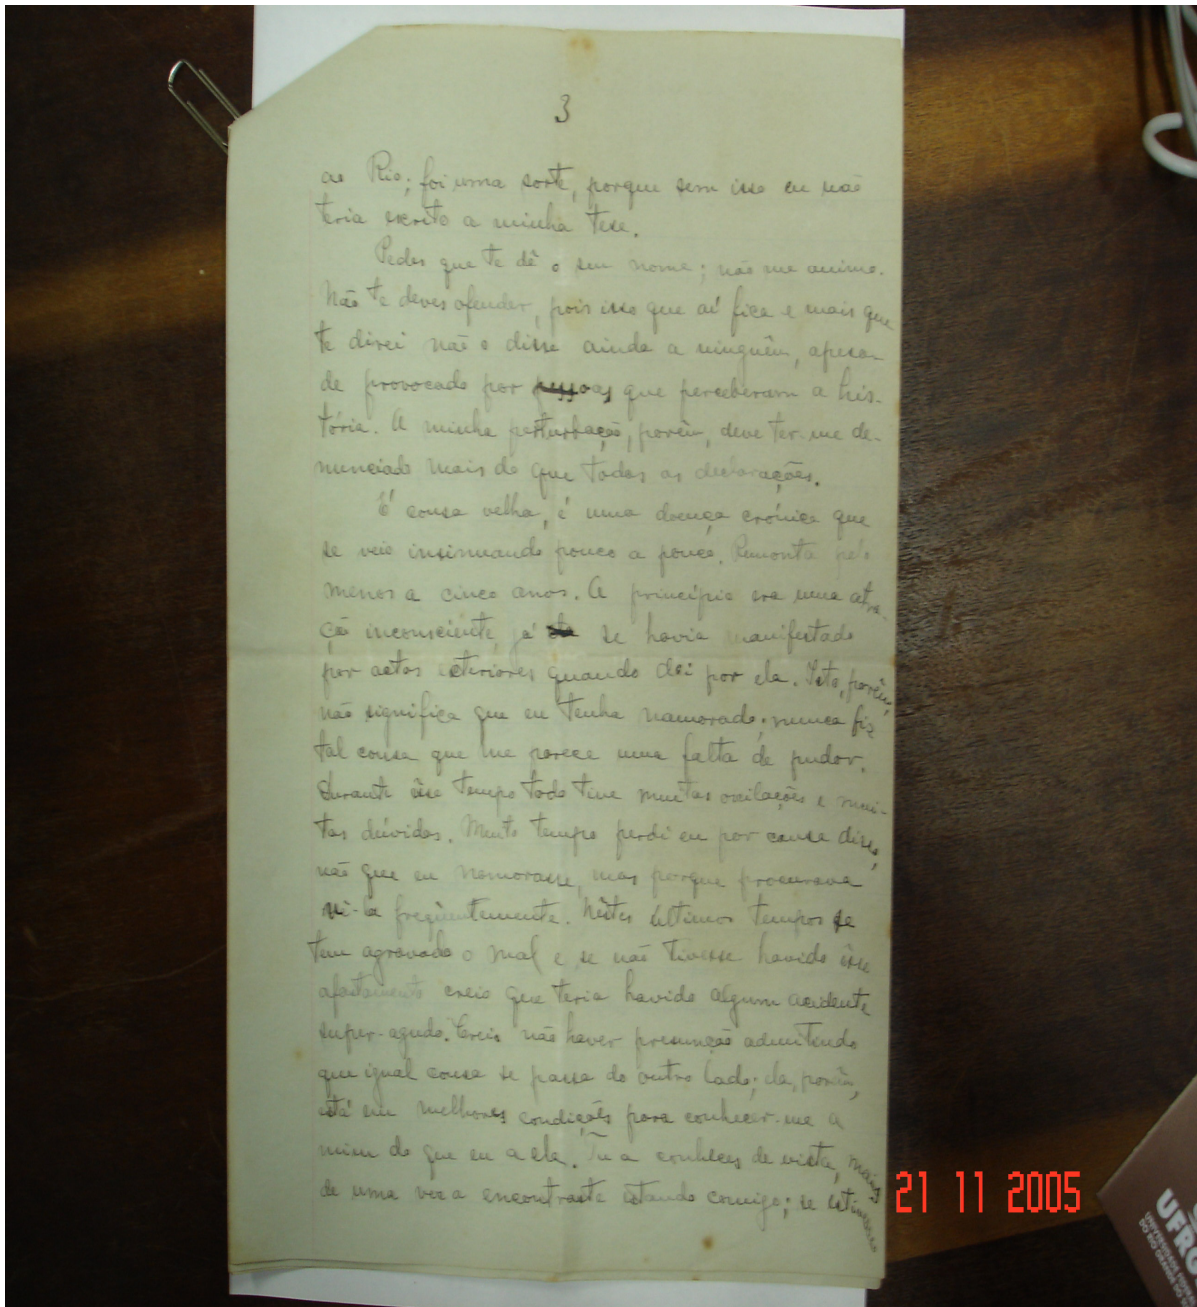 3
ao Rio; foi uma sorte, porque sem isso eu não
teria escrito a minha tese.
Pedes que te dê o seu nome; não me animo.
Não te deves ofender, pois isso que aí fica e mais que
te direi não o disse ainda a ninguêm, apesar
de provocado por pessoas que perceberam a his-
tória. A minha perturbação, porêm, deve ter-me de-
nunciado mais do que todas as declarações.
É cousa velha, é uma doença crónica que
se veio insinuando pouco a pouco. Remonta pelo
menos a cinco anos. A princípio era uma atra-
ção inconsciente, já se havia manifestado
por actos exteriores quando dei por ela. Isto, porêm,
não significa que eu tenha namorado; nunca fiz
tal cousa que me parece uma falta de pudor.
Durante êsse tempo todo tive muitas oscilações e mui-
tas dúvidas. Muito tempo perdi eu por causa disso,
não que eu namorasse, mas porque procurava
vê-la freqüentemente. Nêstes últimos tempos se
tem agravado o mal e se não tivesse havido êsse
afastamento creio que teria havido algum acidente
super-agudo. Creio não haver presunção admitindo
que igual cousa se passa do outro lado; ela, porêm,
está em melhores condições para conhecer-me a
mim do que eu a ela. Tu a conheces de vista, mais
de uma vez a encontraste estando comigo; se estivesses
21 11 2005
UFRG
UNIVERSIDADE
DO RIO GRANDE DO